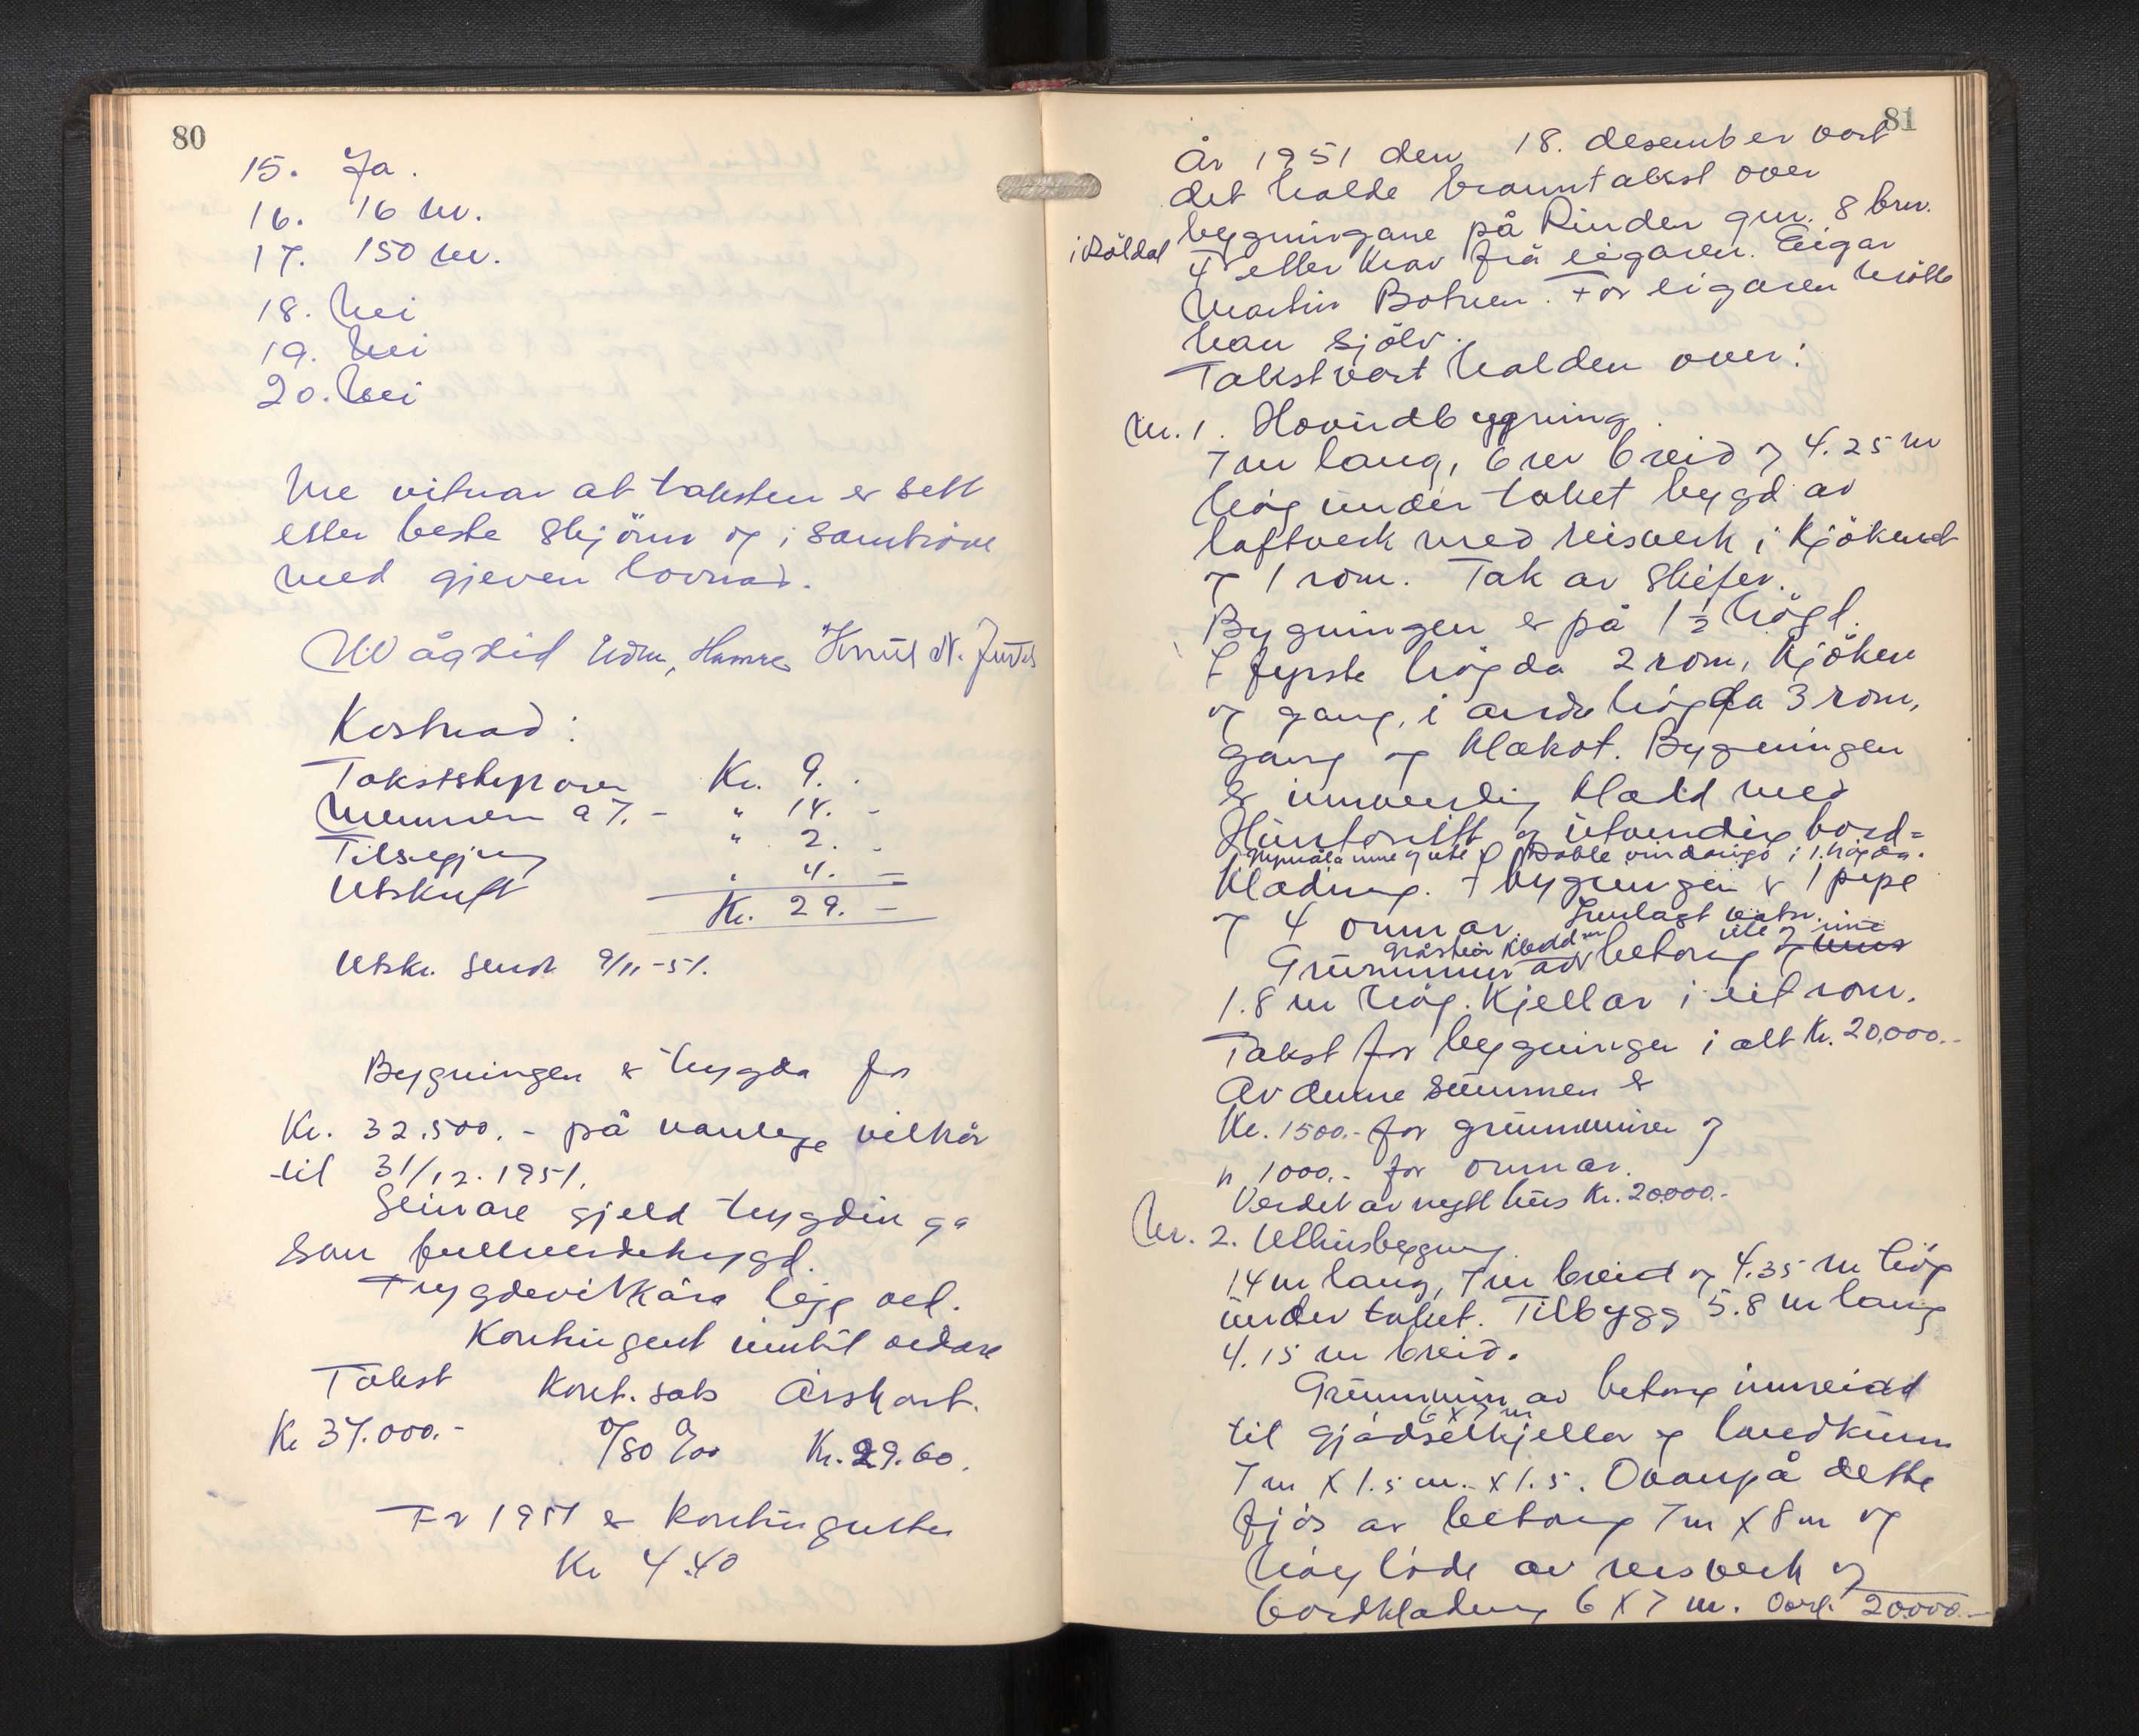 80
15. Ja.
16. 16 m.
17. 150 m.
18. Nei
19. Nei
20. Nei
Me vitnar at taksten er sett
etter beste skjönn og i samhöve
med gjeven lovnad.
W Ågstid Edm. Hamre Knut N. Juvet
Kostnad:
Takstskiparen Kr. 9. -
Mennene a 7. - " 14. -
Tilsegjing " 2. -
Utskrift " 4. =
Kr. 29. -
Utskr. sendt 9/11-51.
Bygningen er trygda for
Kr. 32.500.- på vanlege vilkår
til 31/12.1951.
Seinare gjeld trygdinga
som fullverdetrygd.
Trygdevilkåra legg ved.
Kontingent inntil vidare
Takst Kont. sats Årskont.
Kr 37.000.- 0/80 0/00 Kr. 29.60.
For 1951 er kontingenten
Kr 4.40
81
År 1951 den 18. desember vart
det halde branntakst over
bygningane på Rinden gnr. 8 bnr.
i Röldal 4 etter krav frå eigaren. Eigar
Martin Botnen. For eigaren mötte
han sjölv.
Takst vart halden over:
Nr. 1. Hovudbygning
7 m lang, 6 m breid og 4.25 m
hög under taket bygd av
laftverk med reisverk i kjökenet
og 1 rom. Tak av skifer.
Bygningen er på 1½ högd.
I fyrste högda 2 rom, kjöken
og gang, i andre högda 3 rom,
gang og klekot. Bygningen
er innvendig kledd med
Huntonitt og utvendig bord=
Uppmåla inne og ute. Doble vindaugo i 1. högda.
kledning. I bygningen er 1 pipe
og 4 omnar. Innlagt vatn.
Gråstein kledd m ute og inne
Grunnmur av betong og inne
1.8 m hög. Kjellar i eit rom.
Takst for bygningen i alt Kr. 20.000.-
Av denne summen er
Kr. 1500.- for grunnmuren og
" 1000.- for omnar.
Verdet av nytt hus Kr. 20000.-
Nr. 2. Uthusbygning.
14 m lang, 7 m breid og 4.35 m hög
under taket. Tilbygg 5.8 m lang
4.15 m breid.
Grunnmur av betong innreidd
6 x 7 m
til gjödselkjellar og landkum
7 m x 1.5 m. x 1.5. Ovanpå dette
fjös av betong 7 m x 8 m og
höylöde av reisverk og
bordkledning 6 x 7 m. Overf. 20000.-